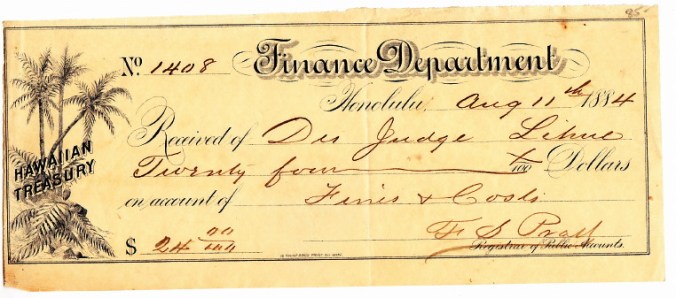 85
No 1408 Finance Department
Honolulu, Aug 11th 1884
Received of Dis Judge Lihue
Twenty four /100 Dollars
HAWAIIAN
TREASURY
on account of Fines & Costs
F S Pratt
$ 24 00/100 Registrar of Public Accounts.